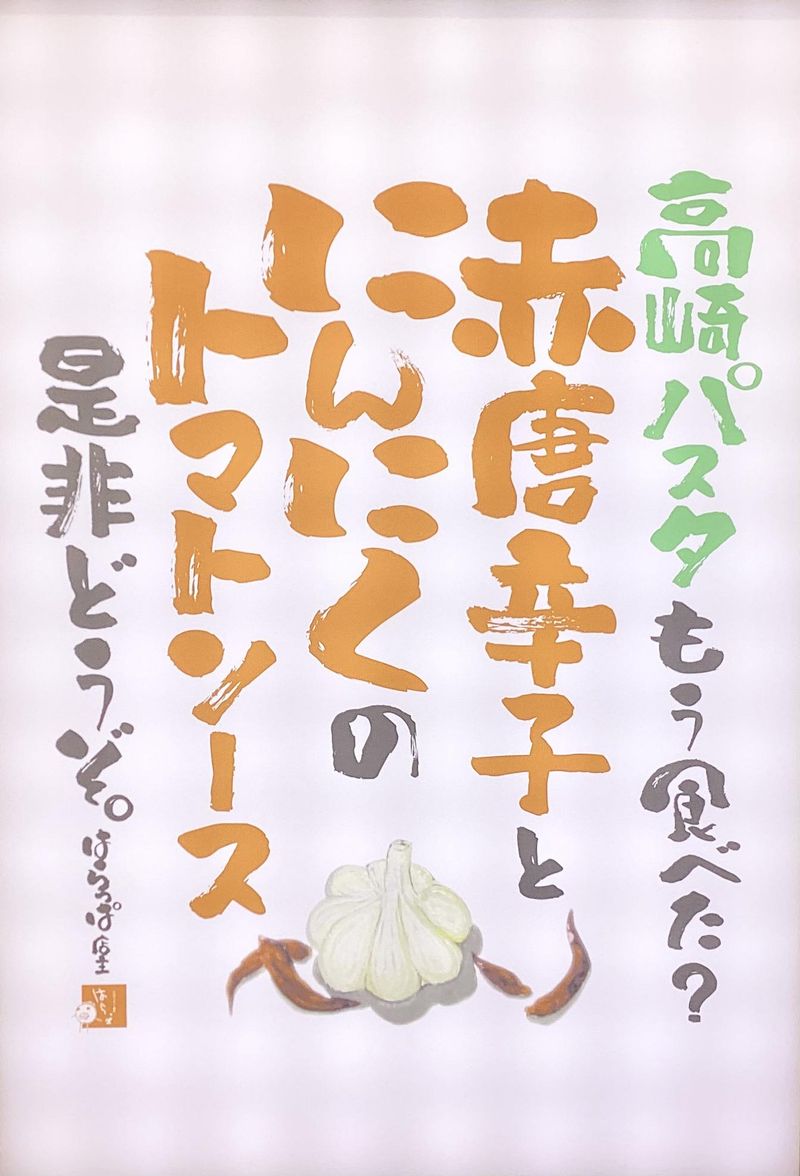 高崎パスタもう食べた?
赤唐辛子と
にんにくの
トマトソース
是非どうぞ。
はらっぱ店主
はらっぱ